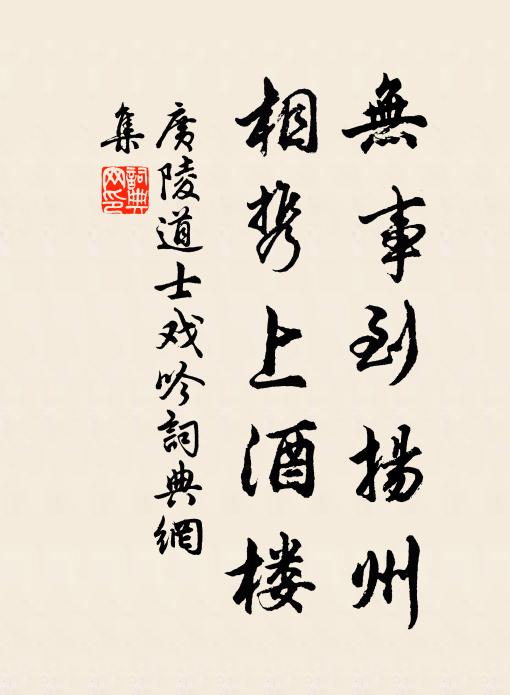 無事到揚州
相携上酒楼
廣陵道士戏吟詞典網
集
詞典
网印